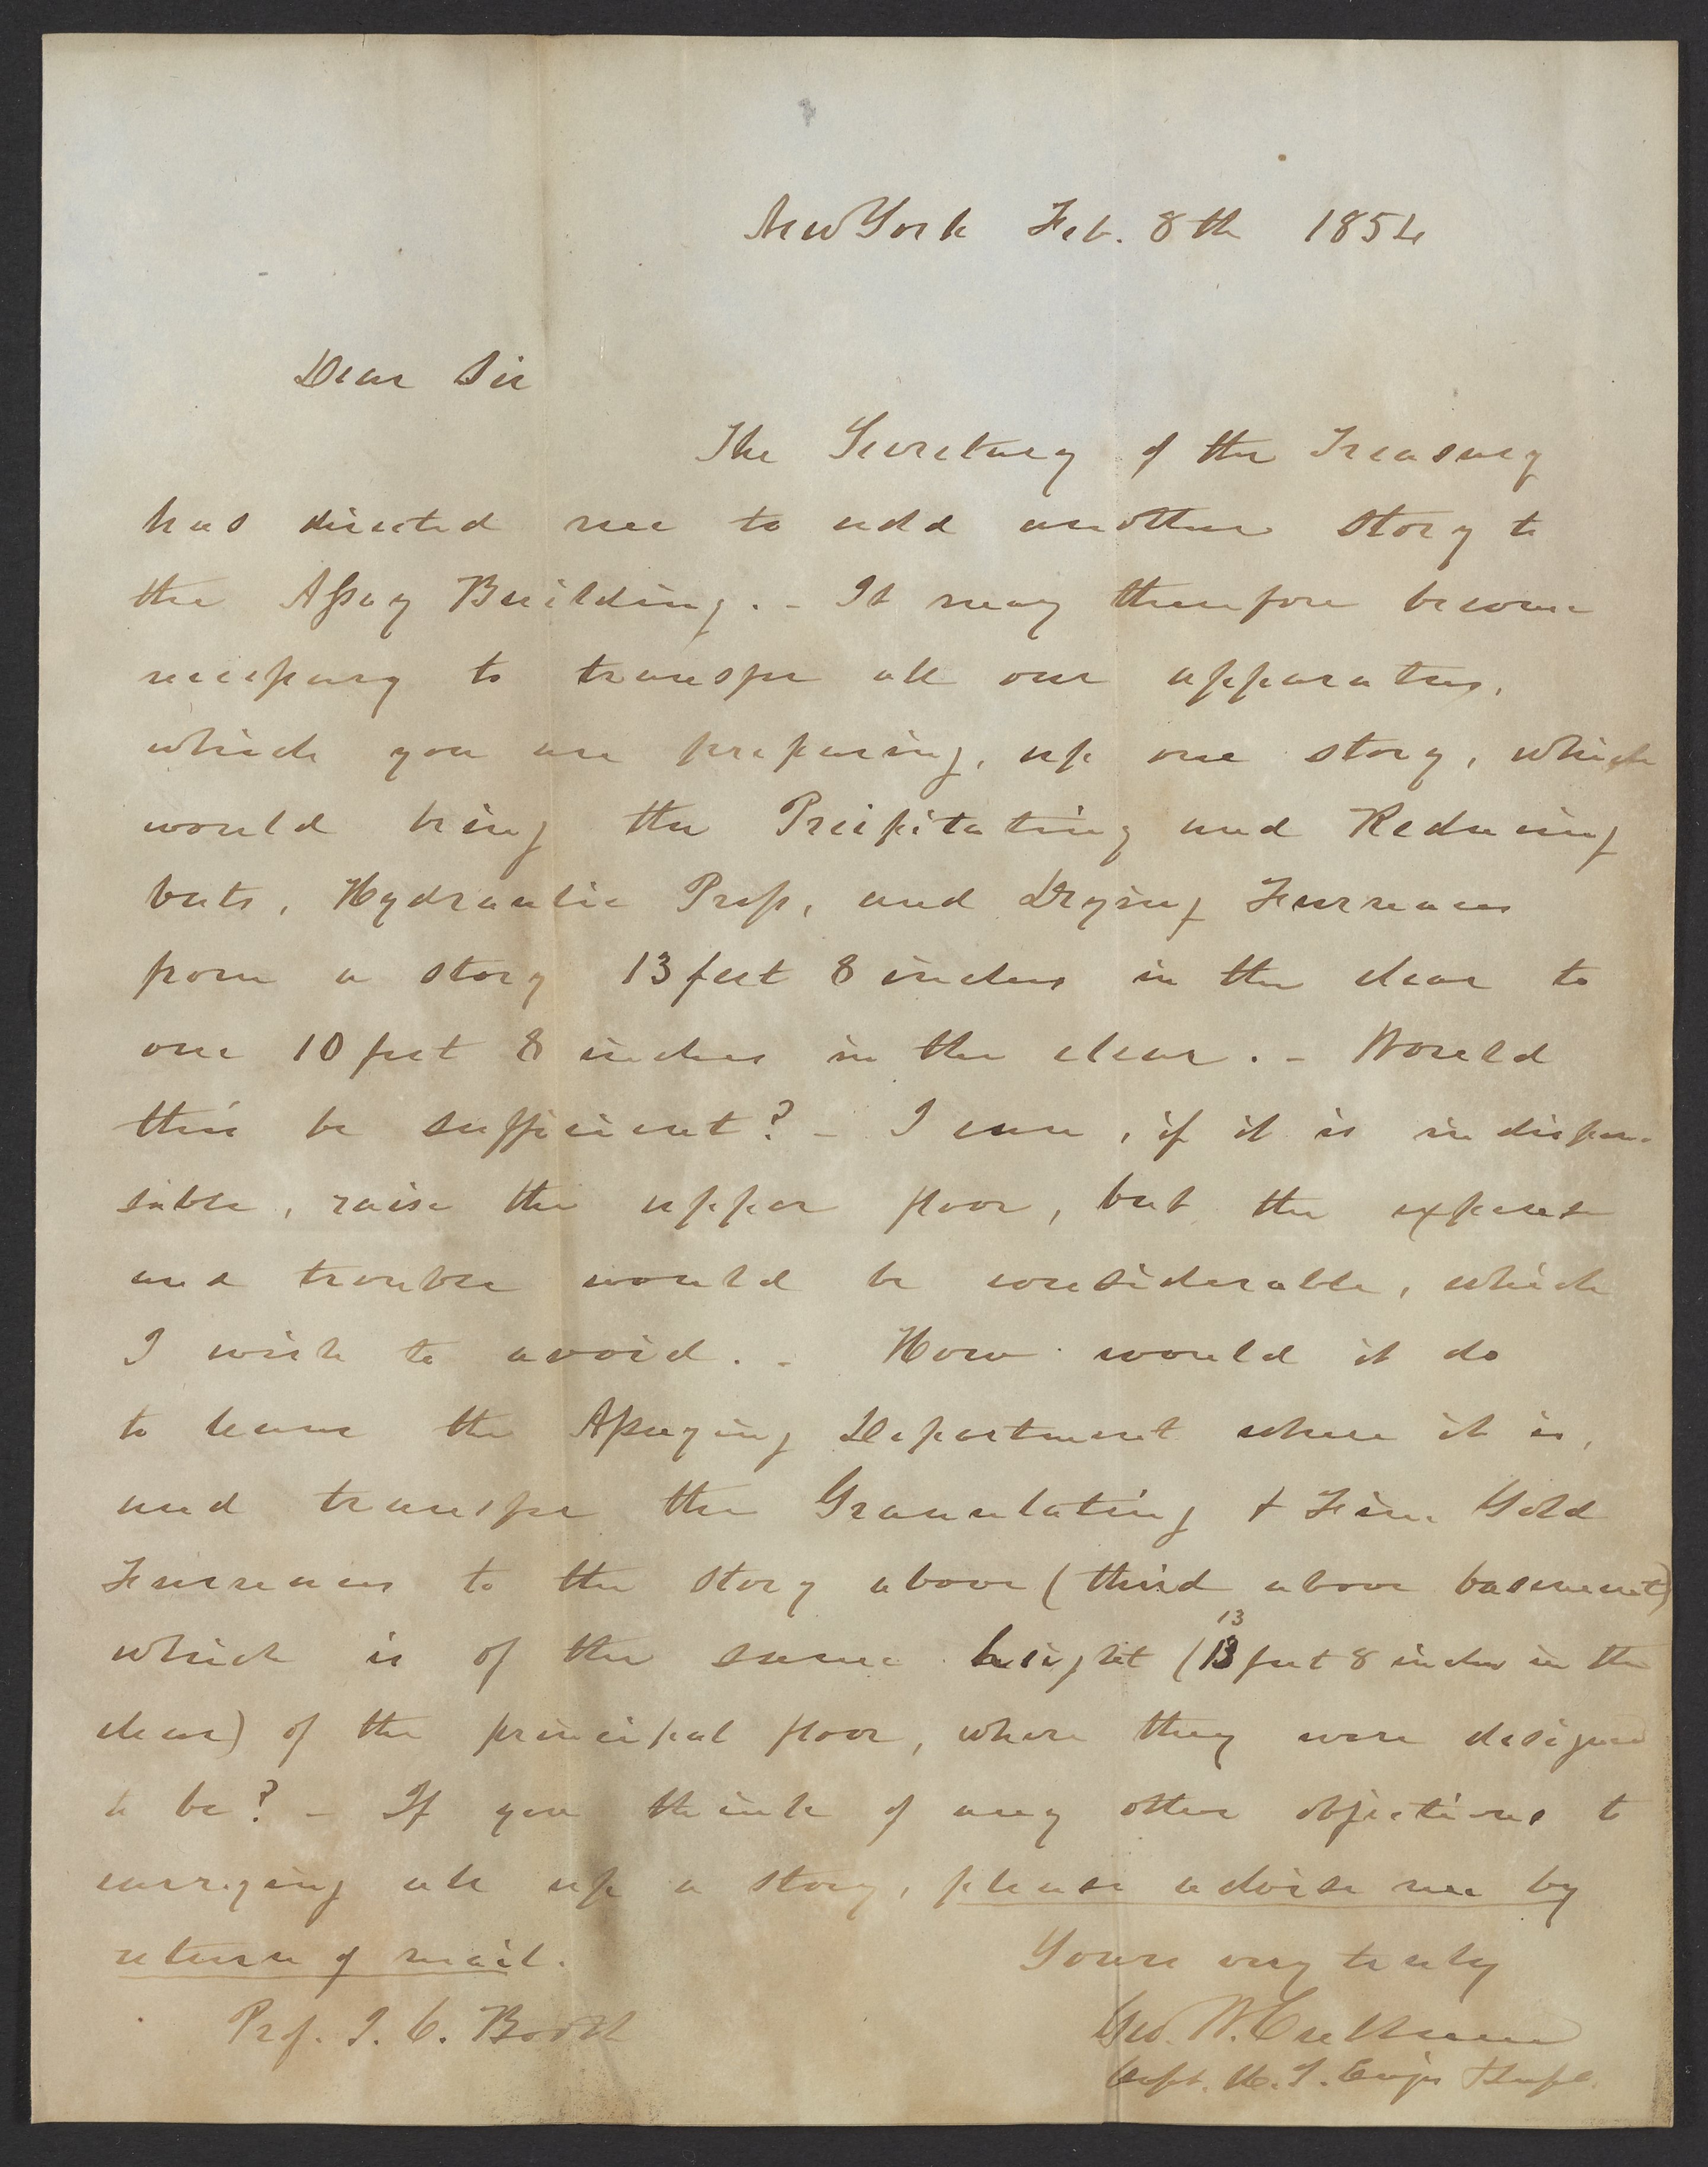 New York Feb. 8th 1854
Dear Sir
The Secretary of the Treasury
has directed me to add another story to
the Assay Building. - It may therefore become
necessary to transfer all our apparatus,
which you are preparing, up one story, which
would bring the Precipitating and Reducing
vats, Hydraulic Press, and Drying Furnaces
from a story 13 feet 8 inches in the clear to
one 10 feet 8 inches in the clear. - Would
this be sufficient? - I can, if it is indispen-
sable, raise the upper floor, but the expense
and trouble would be considerable, which
I wish to avoid. - How would it do
to leave the Assaying Department where it is,
and transfer the Granulating & Fine Gold
Furnaces to the story above (third above basement)
13
which is of the same height (13 feet 8 inches in the
clear) of the principal floor, where they were designed
to be? - If you think of any other objections to
carrying all up a story, please advise me by
return of mail.
Yours very truly
Prof. J. C. Booth
Geo. W. Cullum
Capt. U. S. Engrs & Supt.